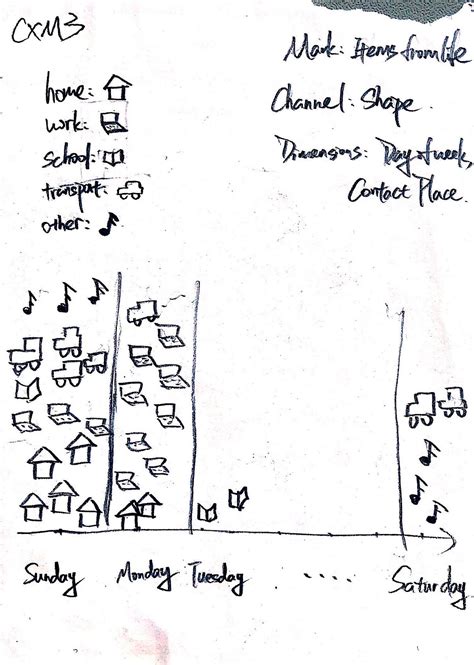 CXM3
Mark: Items from life
Channel: Shape.
Dimensions: Day of week,
Contact Place.
home:
work:
school:
transport:
other:
Sunday
Monday
Tuesday
....
Saturday